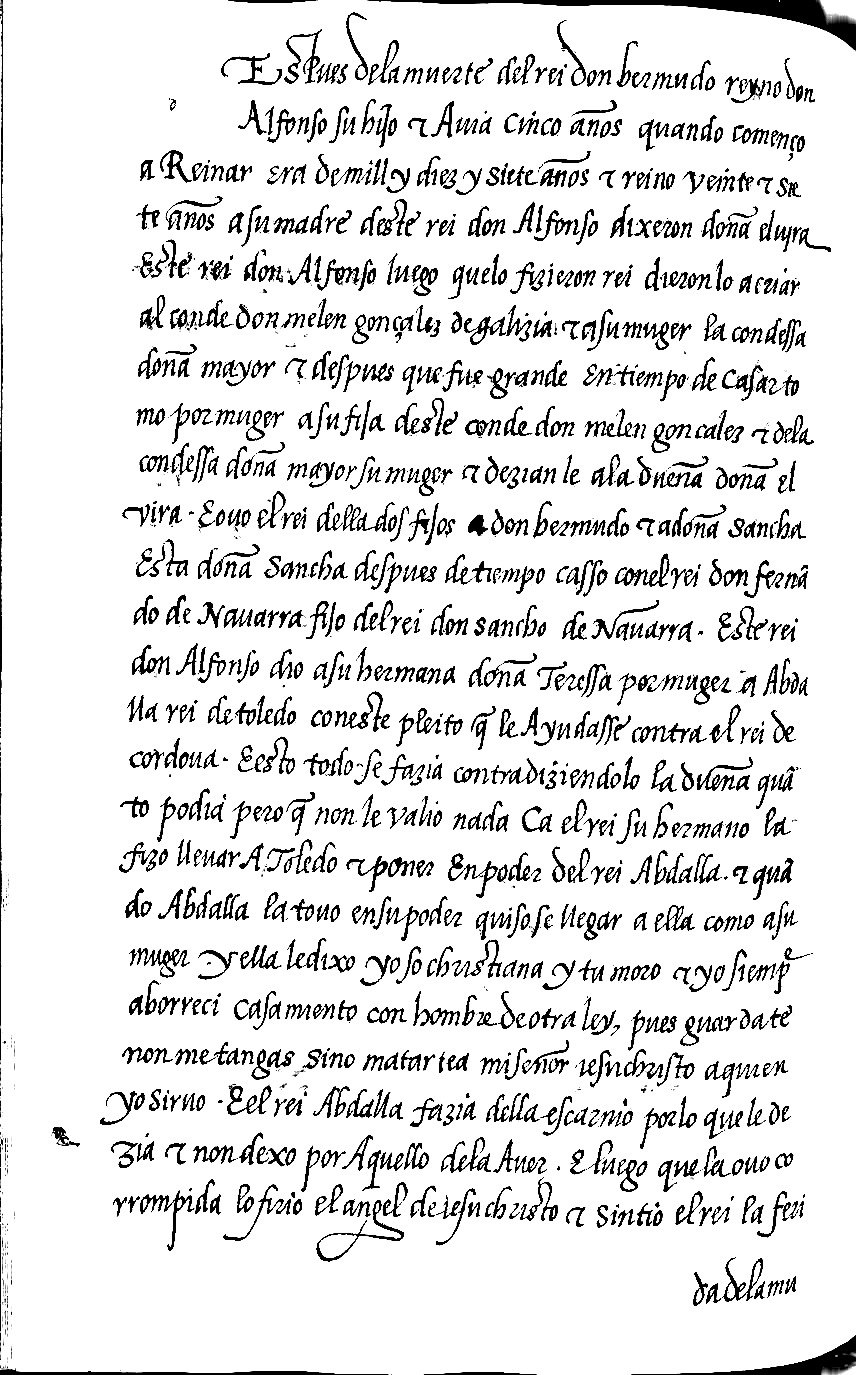 Espues delamuerte del rei don bermudo reyno don
Alfonso su hijo τ Auia cinco años quando començo
a Reinar era demill y diez y siete años τ reino veinte τ sie
te años a su madre deste rei don Alfonso dixeron doña eluira
Este rei don Alfonso luego quelo fizieron rei dieron lo a criar
al conde don melen gonçalez degalizia τ asu muger la condessa
doña mayor τ despues que fue grande En tiempo de casar to
mo por muger a su fija deste conde don melen goncalez τ dela
condessa doña mayor su muger τ dezian le ala dueña doña el
vira · E ouo el rei della dos fijos a don bermudo τ adoña sancha
Esta doña Sancha despues de tiempo casso conel rei don fernã
do de Nauarra fijo del rei don sancho de Nauarra · Este rei
don Alfonso dio asu hermana doña Teressa por muger a Abda
lla rei de toledo coneste pleito q̃ le Ayudasse contra el rei de
cordoua · E esto todo se fazia contradiziendolo la dueña quã
to podia pero q̃ non le valio nada Ca el rei su hermano la
fizo lleuar A Toledo τ poner En poder del rei Abdalla · τ quã
do Abdalla la touo ensu poder quiso se llegar a ella como asu
muger y ella le dixo yo so christiana y tu moro τ yo siemp̃
aborreci casamiento con hombre de otra ley, pues guardate
non me tangas sino matartea mi señor iesuchristo aquien
yo siruo · E el rei Abdalla fazia della escarnio por lo que le de
zia τ non dexo por Aquello dela Auer · E luego que la ouo co
rrompida lo firio el angel de iesuchristo τ sintio el rei la feri
da dela mu